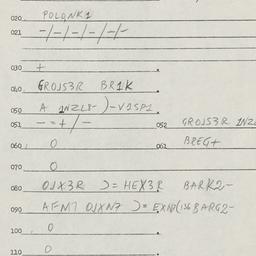 020 POLQNK1
021 -/-/-/-/-/-
030 +
040 GROJS3R BR1K
050 A 1NZL8-)-V1SP1
051 --+/- 052 GROJS3R 1NZL
060 0 061 BREG+
070 0
080 OJX3R )=HEX3R BARK2-
090 AFN7 OJXN7 )=
100 0
110 0